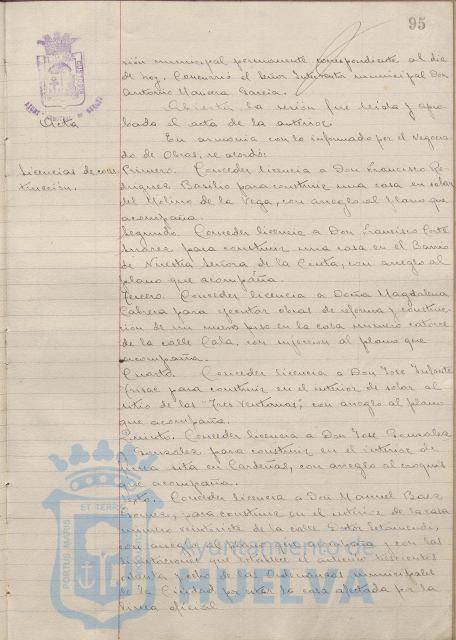 95
sión municipal permanente correspondiente al dia
de hoy. Concurrió el Señor Interventor municipal Don
Antonio Garcia.
Abierta la sesión fue leida y apro-
Acta
bada el acta de la anterior.
En armonia con lo informado por el Negocia-
do de Obras, se acordó:
Licencias de cons-
trucción.
Primero. Conceder licencia a Don Francisco Ro-
driguez Basilio para construir una casa en solar
del Molino de la Vega, con arreglo al plano que
acompaña.
Segundo. Conceder licencia a Don Francisco Cortés
Suárez para construir una casa en el Barrio
de Nuestra Señora de la Cinta, con arreglo al
plano que acompaña.
Tercero. Conceder licencia a Doña Magdalena
Cabrera para ejecutar obras de reforma y construc-
ción de un nuevo piso en la casa numero catorce
de la calle Cala, con sujeccion al plano que
acompaña.
Cuarto. Conceder licencia a Don José Infante
para construir en el interior de solar al
sitio de las "Tres Ventanas", con arreglo al plano
que acompaña.
Quinto. Conceder licencia a Don José Gonzalez
Gonzalez para construir en el interior de
finca sita en Cardeñas, con arreglo al croquis
que acompaña.
Sexto. Conceder licencia a Don Manuel Baez
Gomez, para construir en el interior de la casa
numero veintisiete de la calle Doctor
con arreglo al plano que acompaña y con las
limitaciones que establece el articulo trescientos
ochenta y ocho de las Ordenanzas municipales
de la Ciudad por estar la casa afectada por la
linea oficial.
PORTUS MARIS
ET TERRAE
Ayuntamiento de
HUELVA